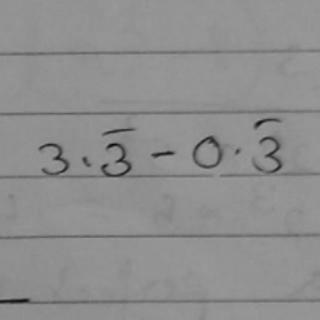 3.3̅ - 0.3̅